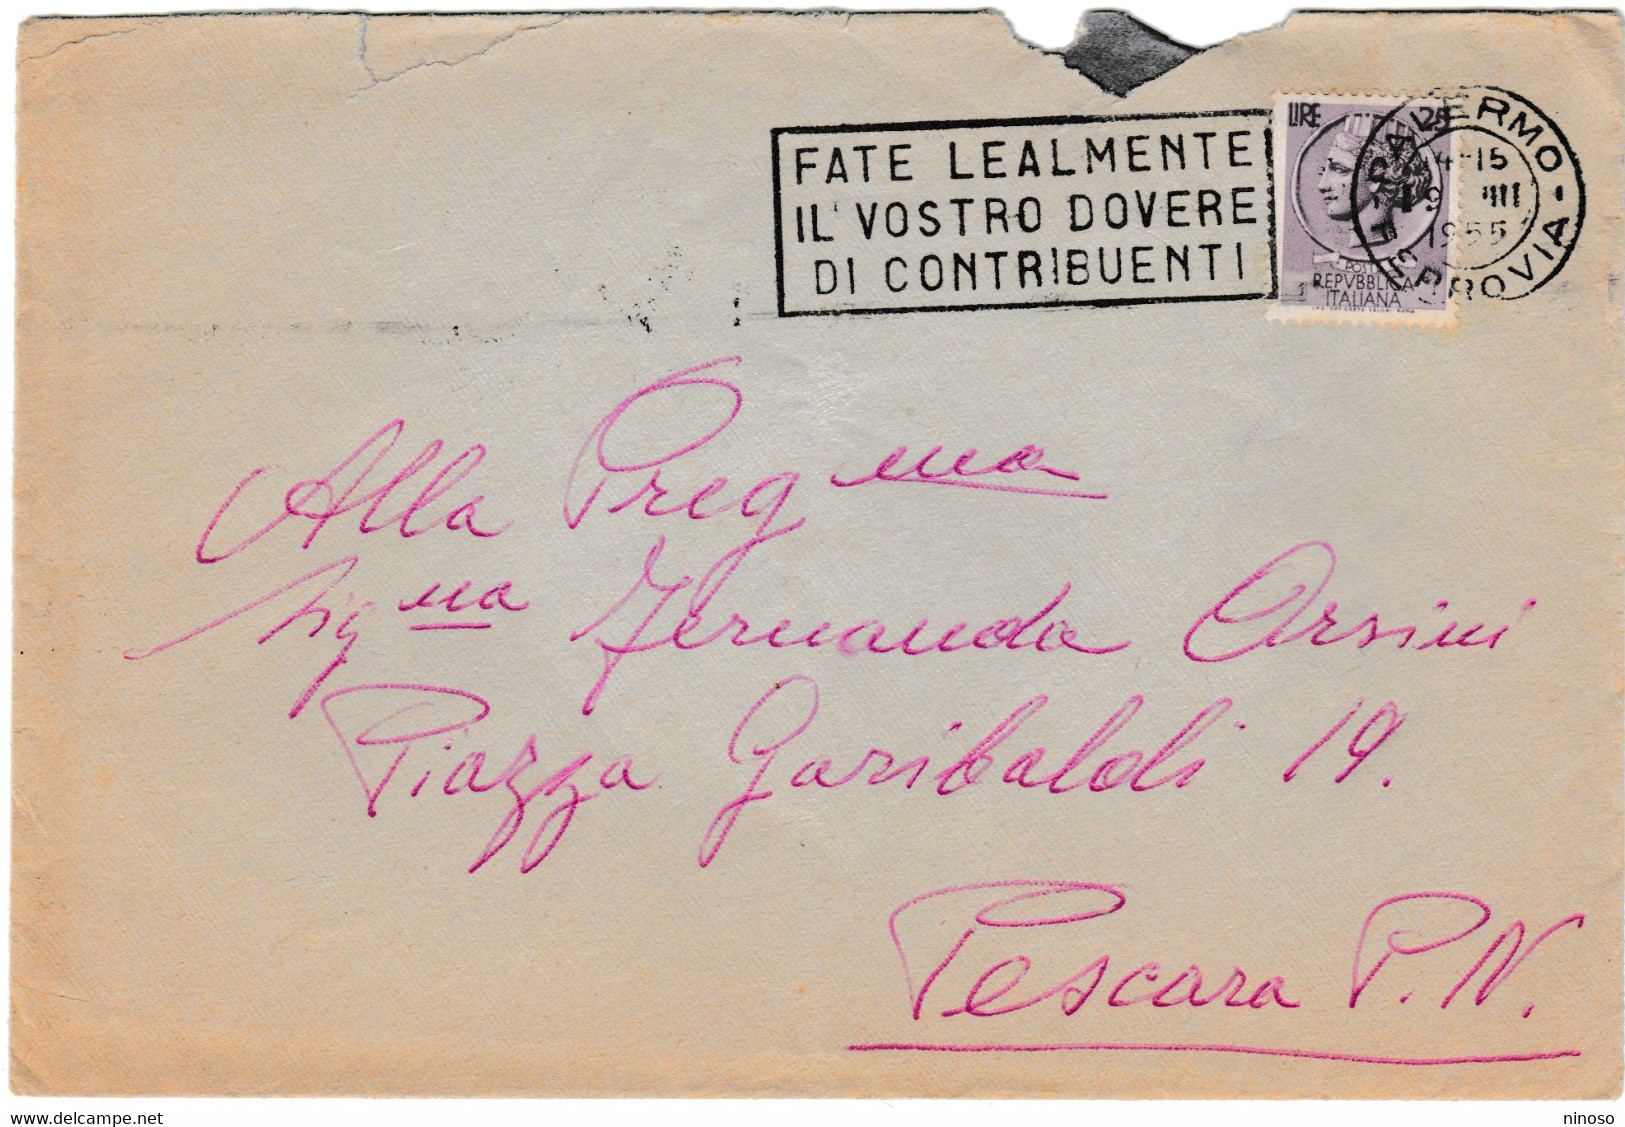 FATE LEALMENTE
IL VOSTRO DOVERE
DI CONTRIBUENTI
LIRE 25
POSTE
REPVBBLICA
ITALIANA
PALERMO
14-15
19 VIII
1955
FERROVIA
Alla Preg ma
Sig na Fernanda Orsini
Piazza Garibaldi 19.
Pescara P.N.
www.delcampe.net
ninoso